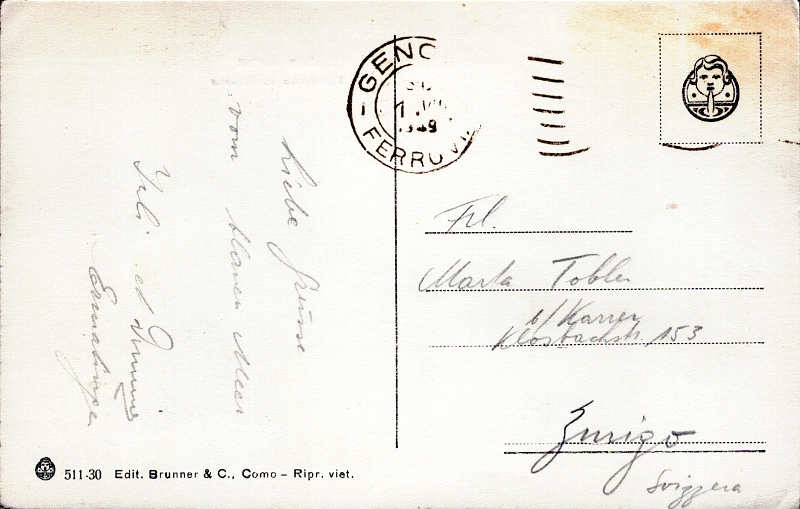 Liebe Grüsse
vom blauen Meer
et
GENO
1
1939
FERROV
Frl.
Marta Tobler
b/ Karrer
Klosbachstr. 153
Zurigo
Svizzera
511-30 Edit. Brunner & C., Como – Ripr. viet.